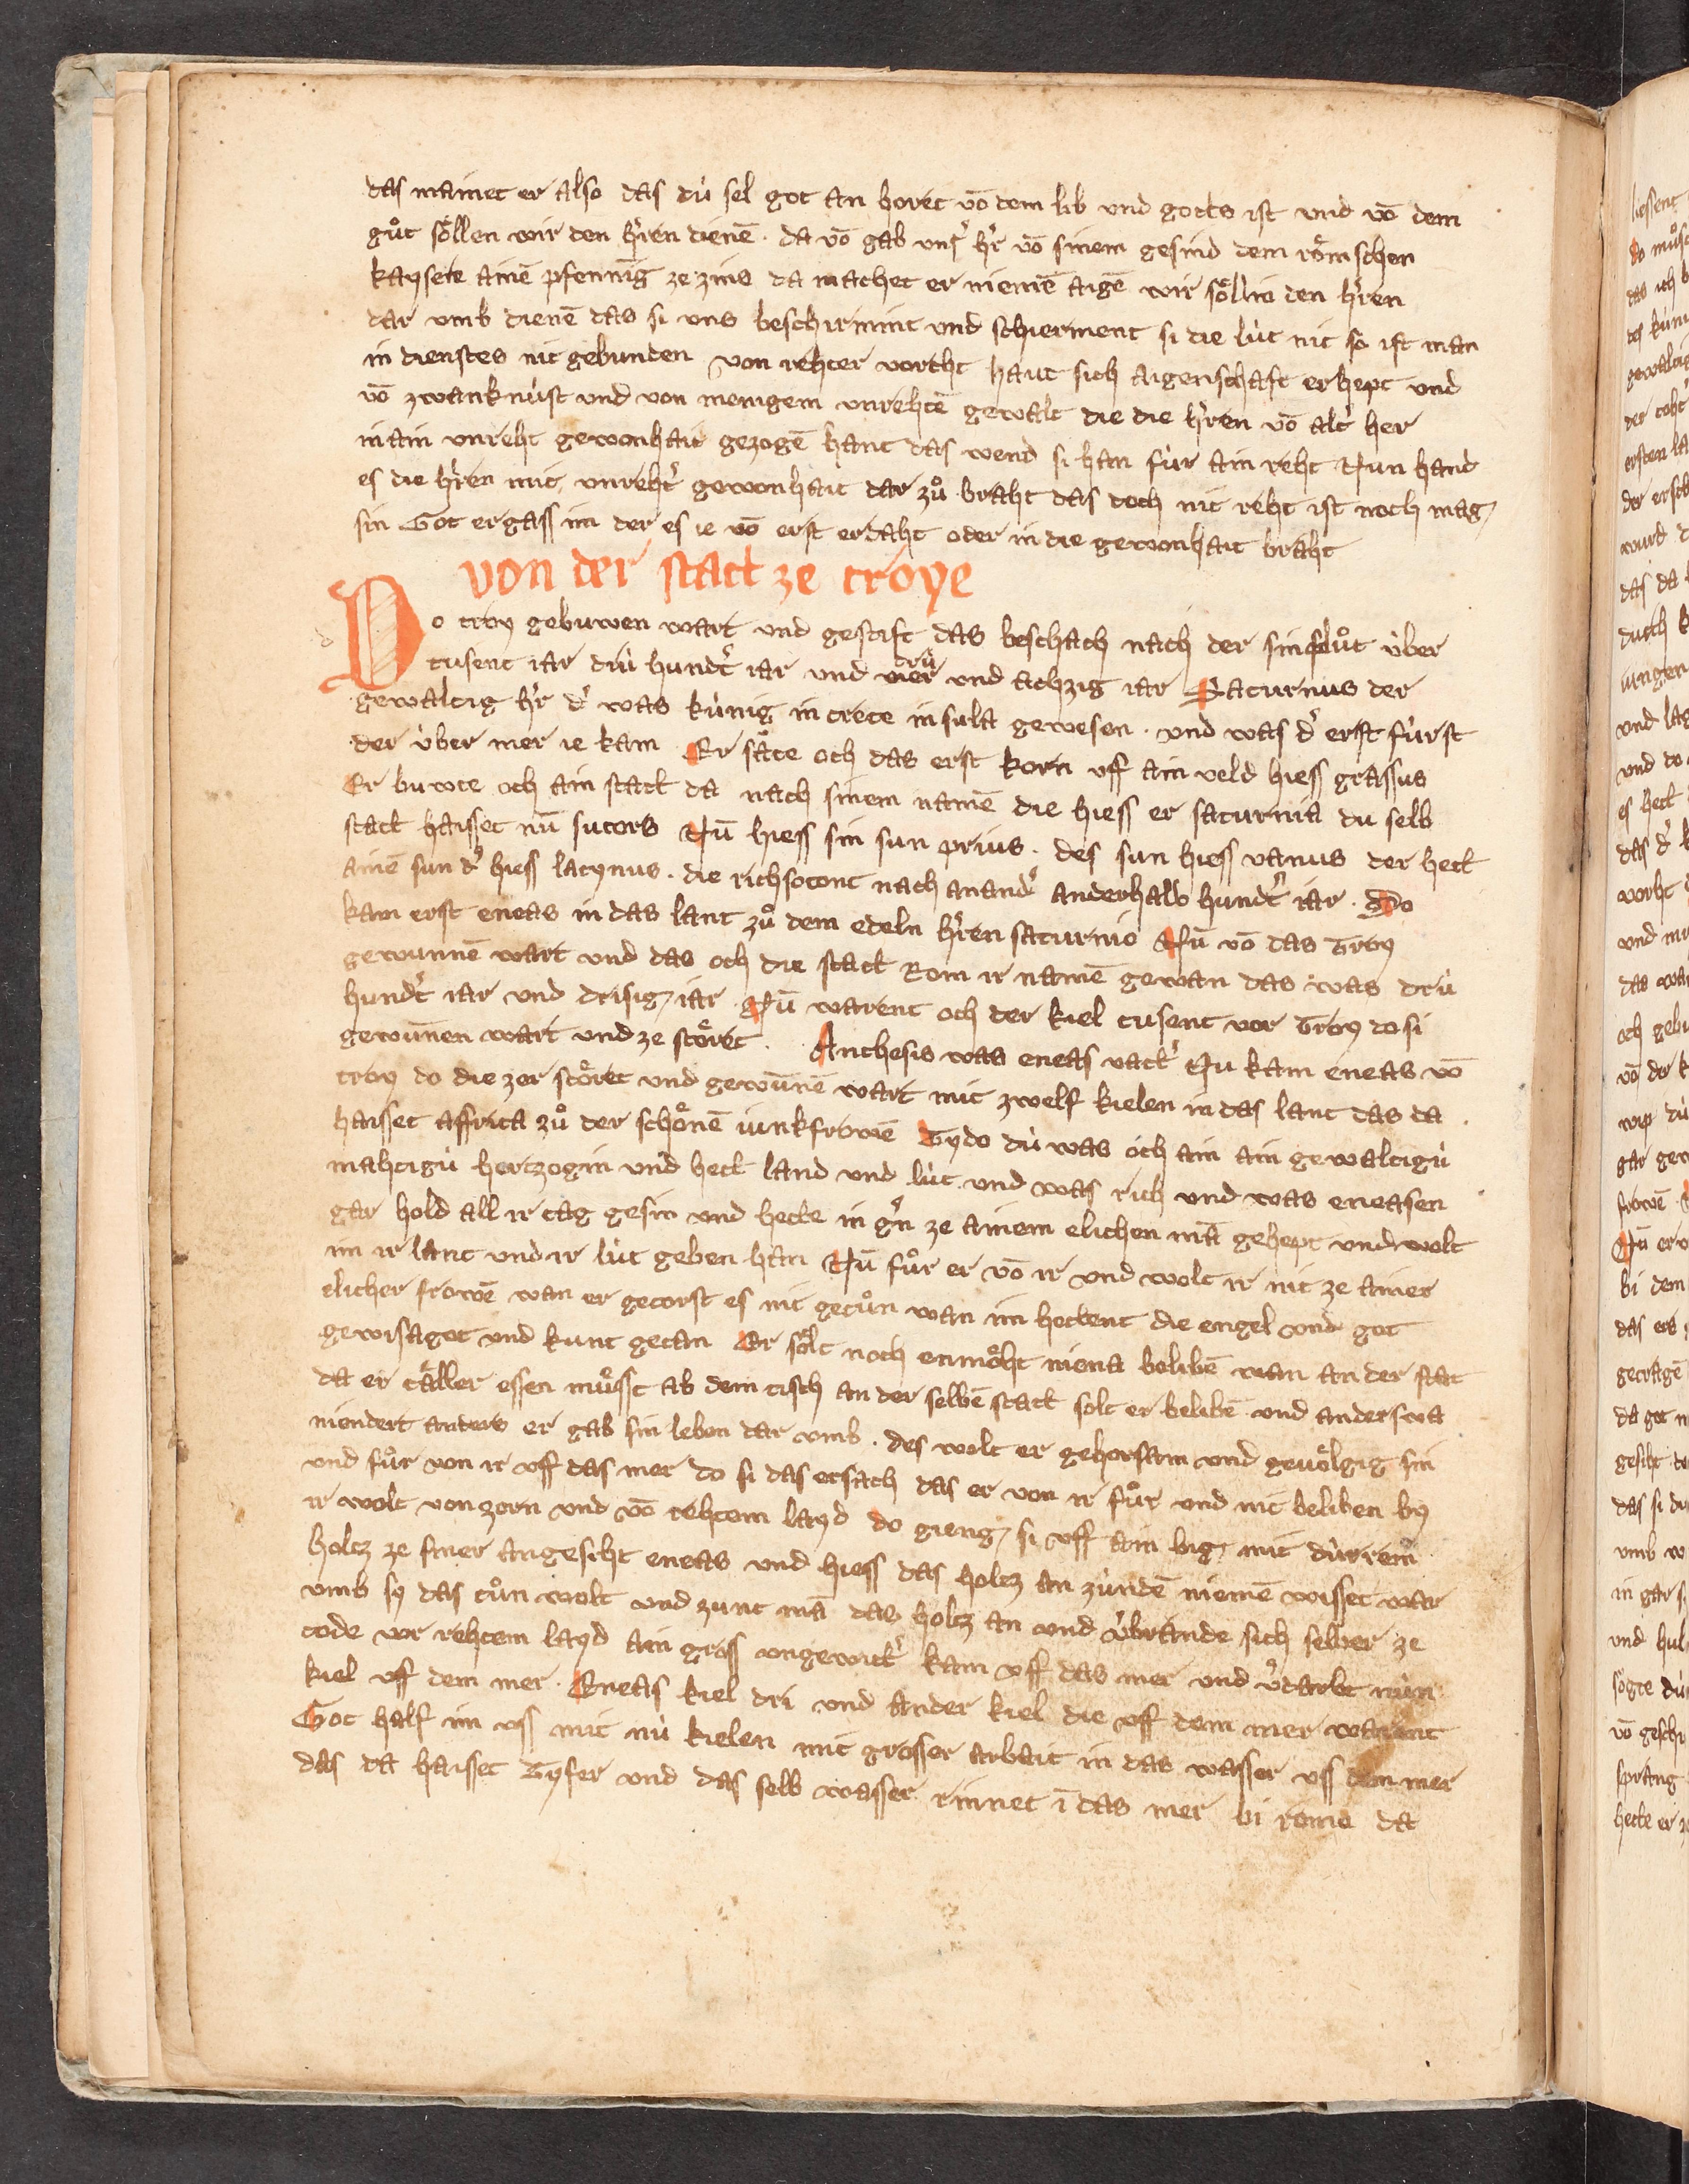 das mainet er also das dù sel got an hoͤret vō dem lib und gottes ist und vō dem
guͦt soͤllen wir den h̓ren dienē · da vō gab uns̓ h̓r vō sinem gesind dem roͤmschen
kaysere ainē pfennig ze zins da machet er niemē aigē wir soͤllin den h̓ren
dar umb dienē das si uns beschirmint und schierment si die lùt nit so ist man
in dienstes nit gebunden von rehter vorcht haut sich aigenschaft erhept und
vō zwanknùst und von menigem unrehtē gewalt die die h̓ren vō alt̓ her
in ain unreht gewonhait gezogē hant das wend si han fùr ain reht Nun hand
es die h̓ren mit unreht̓ gewonhait dar zuͦ braht das doch nit reht ist noch mag
sin Got ergass im der es ie vō erst erdaht oder in die gewonhait braht
von der statt ze troye
Do troy gebuwen wart und gestift das beschach nach der sinfluͦt ùber
tusent iar drù hundt̓ iar und vier drù und achzig iar Saturnus der
gewaltig h̓r d̓ was kùnig in crete insula gewesen · und was d̓ erst fùrst
der ùber mer ie kam Er saͤte och das erst korn uff ain veld hiess grassus
Er buwte och ain statt da nach sinem namē die hiess er saturnia du selb
statt haisset nū sutors Nū hiess sin sun prius · des sun hiess vanus der hett
ainē sun d̓ hiess latynus · die richsotont nach anand̓ anderhalb hundt̓ iar · Do
kam erst eneas in das lant zuͦ dem edeln h̓ren saturnio Nū vō das Troy
gewunnē wart und das och die statt Rom ir namē gewan das was drù
hundt̓ iar und drisig iar Nū warent och der kiel tusent vor Troy do si
gewūnen wart und ze stoͤret · Anthesis was eneas vatt̓ Nu kam eneas vō
troy do die zer stoͤret und gewūnē wart mit zwelf kielen in das lant das da
haisset affrica zuͦ der schoͤnē iunkfrowē Tydo dù was och ain ain gewaltigù
mahtigù hertzogin und hett land und lùt und was rich und was eneasen
gar hold all ir tag gesin und hette in g̓n ze ainem elichen mā gehept und wolt
im ir lant und ir lùt geben han Nū fuͦr er vō ir und wolt ir nit ze ainer
elicher frowē wan er getorst es nit getuͦn wan im hettent die engel vnd got
gewisagot und kunt getan Er soͤlt noch enmoͤht niena belibē wan an der stat
da er taͤller essen muͦsst ab dem tisch an der selbē statt solt er belibē und anderswa
niendert anders er gab sin leben dar umb · des wolt er gehorsam und gevoͤlgig sin
und fuͦr von ir uff das mer do si das ersach das er von ir fuͦr und nit beliben by
ir wolt von zorn und vō rehtem layd do gieng si uff ain big mit dùrrem
holtz ze siner angesiht eneas und hiess das holtz an zùndē niemē wisset war
umb sy das tuͦn wolt und zunt mā das holtz an und v̓brande sich selber ze
tode vor rehtem layd ain gross ungewitt̓ kam uff das mer und v̓darbt nùn
kiel uff dem mer · Eneas kiel dri und ander kiel die uff dem mer warent
Got half im uss mit nù kielen mit grosser arbait in das wasser uss dem mer
das da haisset Tyfer und das selb wasser rinnet ī das mer bi rome da